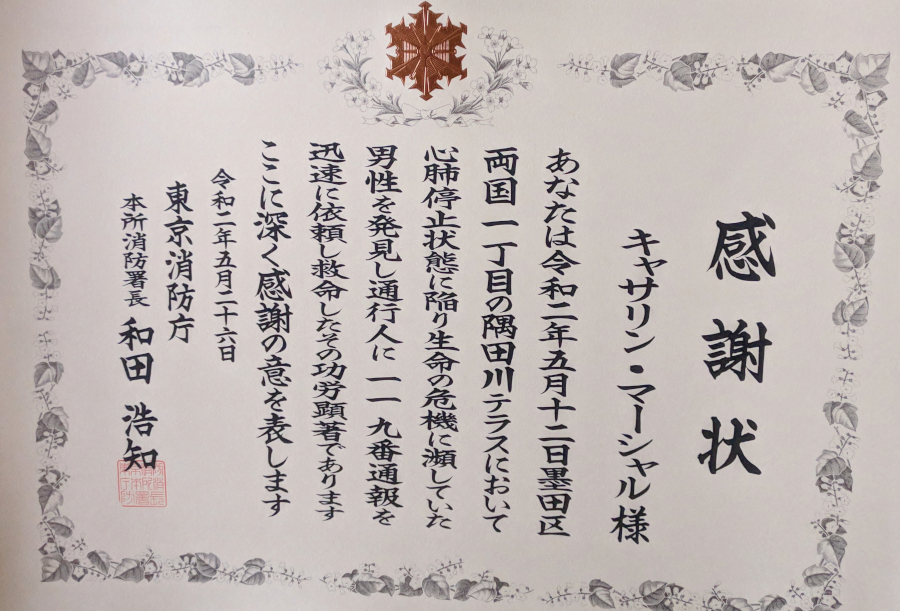 感謝状
キャサリン・マーシャル様
あなたは令和二年五月十二日墨田区
両国一丁目の隅田川テラスにおいて
心肺停止状態に陥り生命の危機に瀕していた
男性を発見し通行人に一一九番通報を
迅速に依頼し救命したその功労顕著であります
ここに深く感謝の意を表します
令和二年五月二十六日
東京消防庁
本所消防署長 和田 浩知